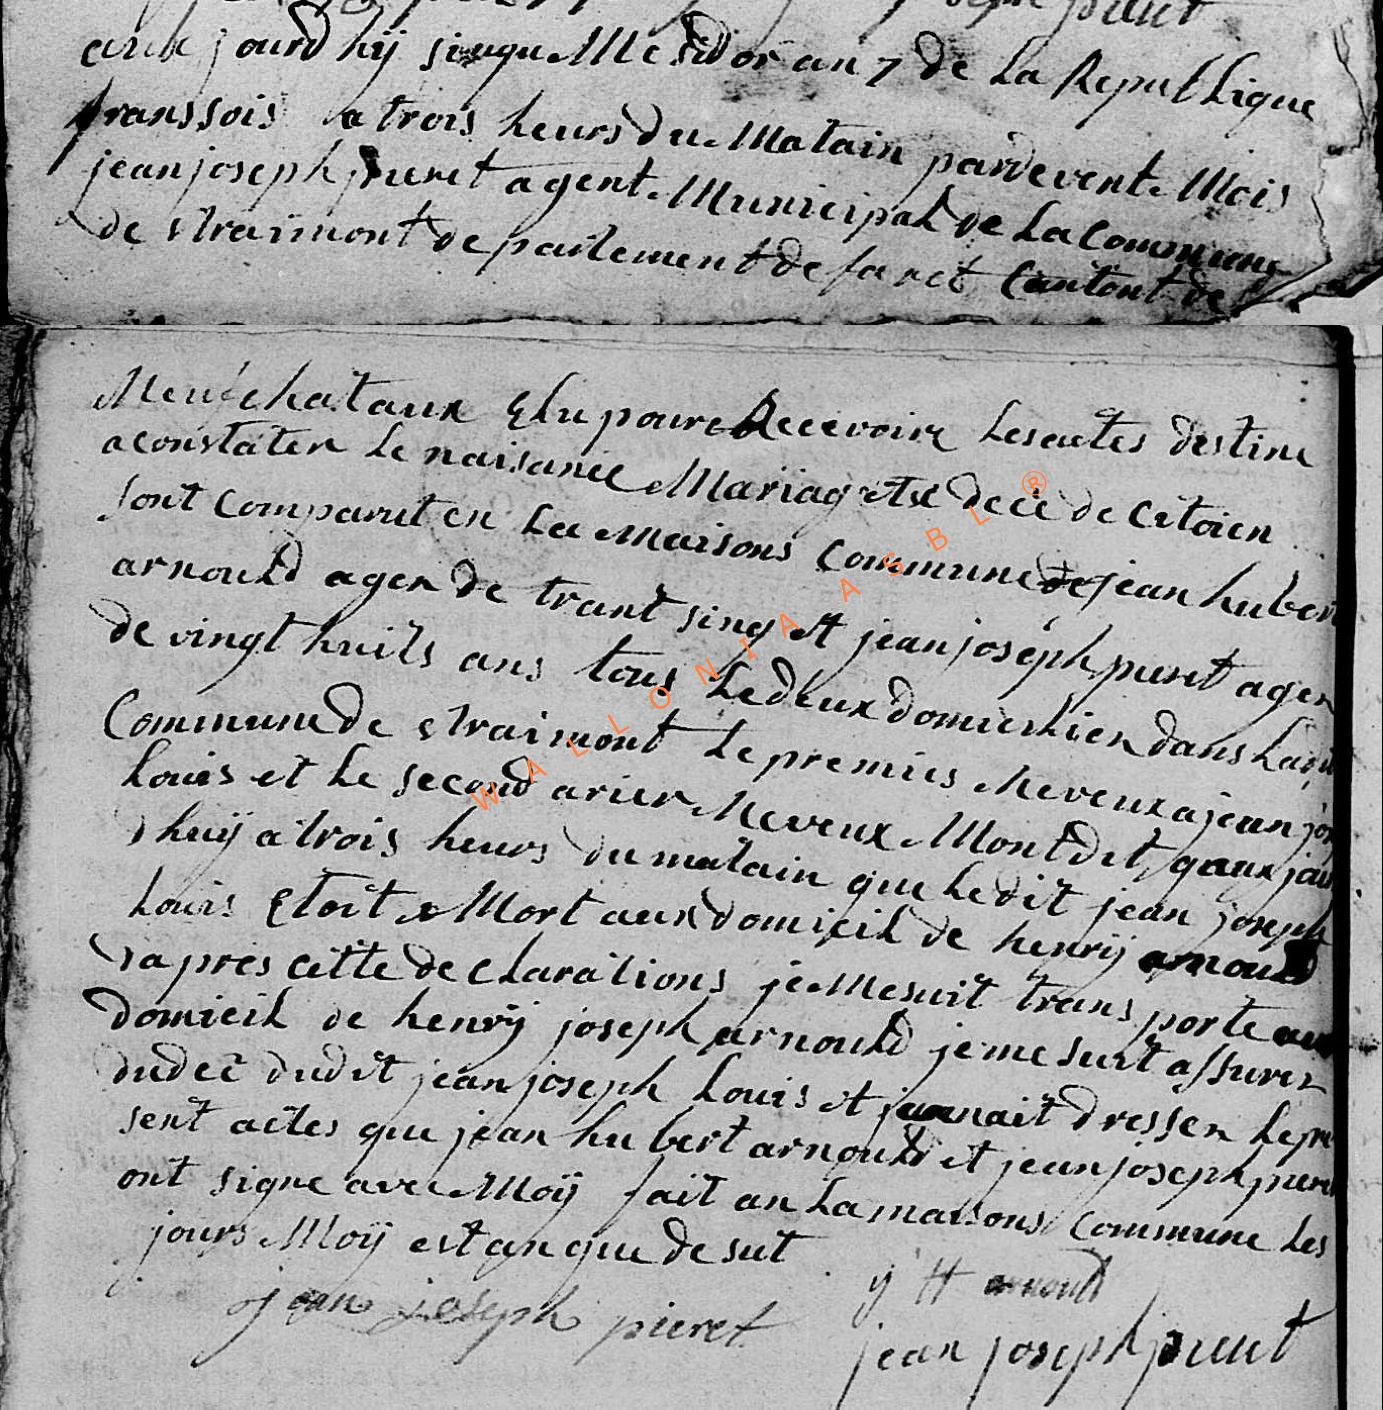 aux jourd hÿ sinque Mesidor an 7 de La Republique
franssois a trois heurs du Matain pardevent Mois
jean joseph pieret agent Municipal de La Commune
de straimont departement de faret Cantont de
Neufchataux Elu poure Recevoire Les actes destine
a constater Le naisance Mariag et de ce de Citoien
sont Comparut en La Maisons Commune de jean hubert
arnould agen de trant sinq et jean joseph pieret agen
de vingt huits ans tous Le deux domicilien dans Ladi
Commune de straimont Le premies Neveux a jean jos
Louis et Le second arier Neveux Mont dit quaux jour
d huÿ a trois heurs du matain que Le dit jean joseph
Louis Etoit Mort aux domicil de henrÿ arnould
d apres cette declarations je Me suit transporte aux
domicil de henrÿ joseph arnould je me suit assurer
du dec dudit jean joseph Louis et jannait dresser Le pre
sent actes que jean hubert arnould et jean joseph pieret
ont signe avec Moÿ fait an La maisons Commune Les
jours Moÿ est an que de sut
jean joseph pieret
H arnould
jean joseph pieret
WALLONIA ASBL ®